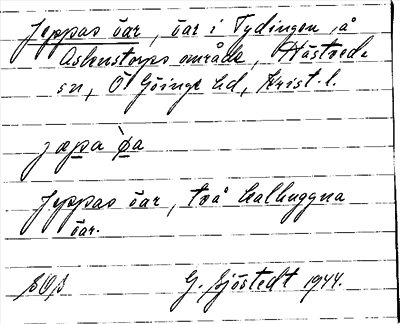 Jeppas öar, öar i Tydingen å
Askenstorps område, Hästveda
sn, Ö. Göinge hd, Krist. l.
jæpa ø̀a
Jeppas öar, två kalhuggna
öar.
G. Sjöstedt 1944.